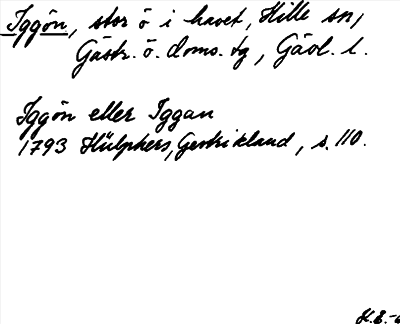 Iggön, stor ö i havet, Hille sn,
Gästr. ö. doms. tg, Gävl. l.
Iggön eller Iggan
1793 Hülphers, Gestrikland, s. 110.